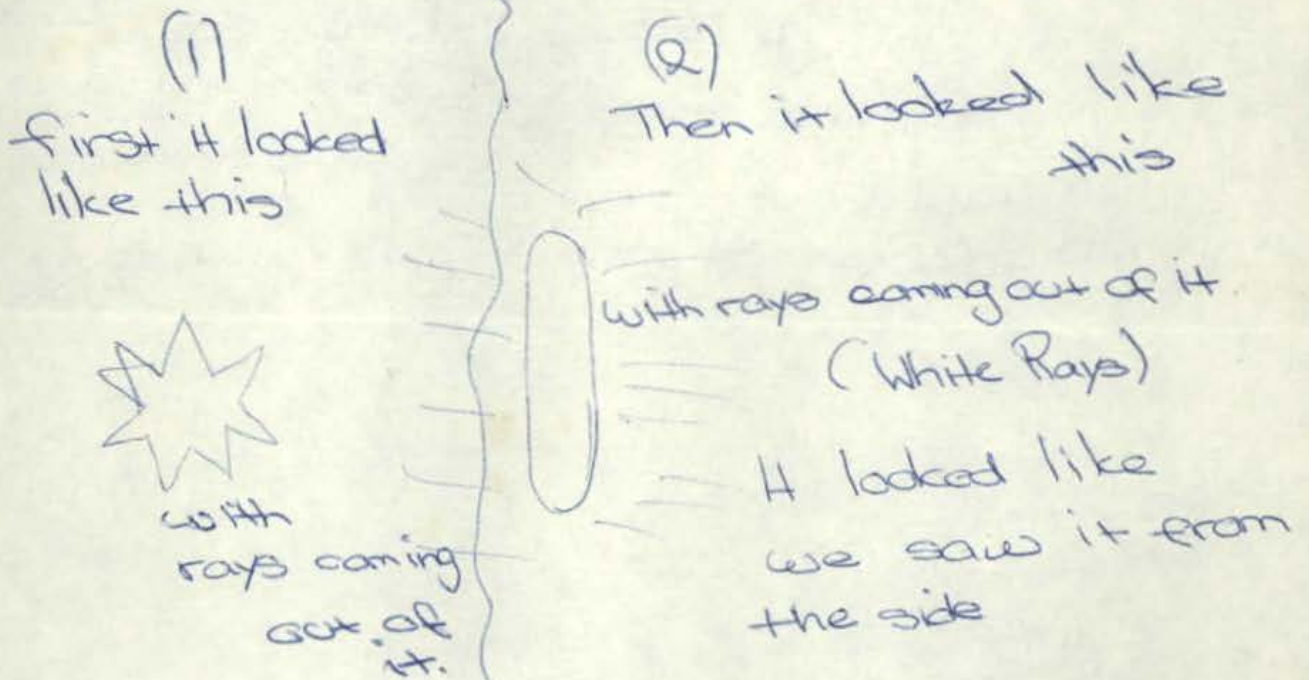 (1)
first it looked
like this
with
rays coming
out of
it.
(2)
Then it looked like
this
with rays coming out of it.
(White Rays)
It looked like
we saw it from
the side